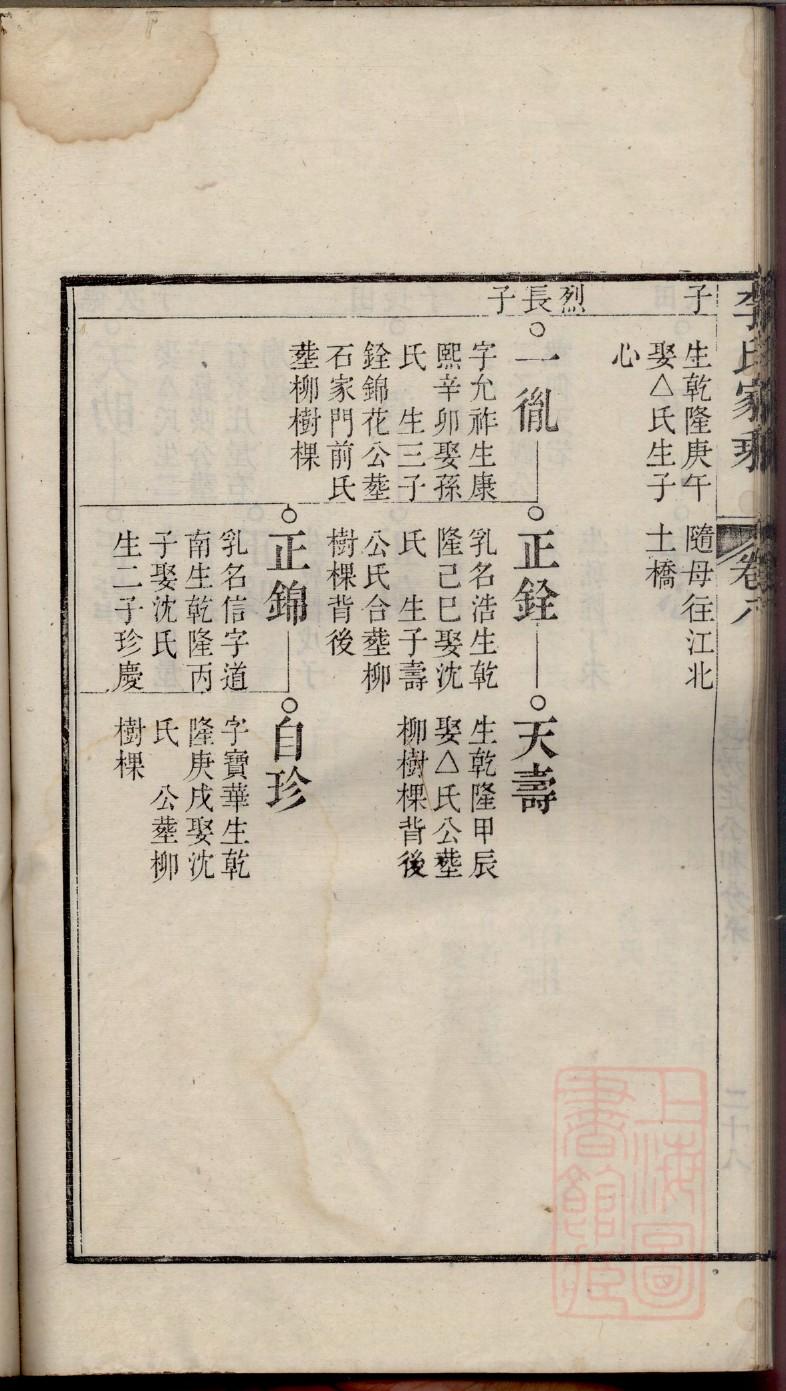 李氏家
卷六
子
生乾隆庚午
娶△氏生子
心
隨母往江北
土橋
烈長子
一胤
字允祚生康
熙辛卯娶孫
氏　生三子
銓錦花公塟
石家門前氏
塟柳樹棵
正銓
乳名浩生乾
隆己巳娶沈
氏　生子壽
公氏合塟柳
樹棵背後
天壽
生乾隆甲辰
娶△氏公塟
柳樹棵背後
正錦
乳名信字道
南生乾隆丙
子娶沈氏
生二子珍慶
自珍
字寶華生乾
隆庚戌娶沈
氏　公塟柳
樹棵
上海圖
書館藏